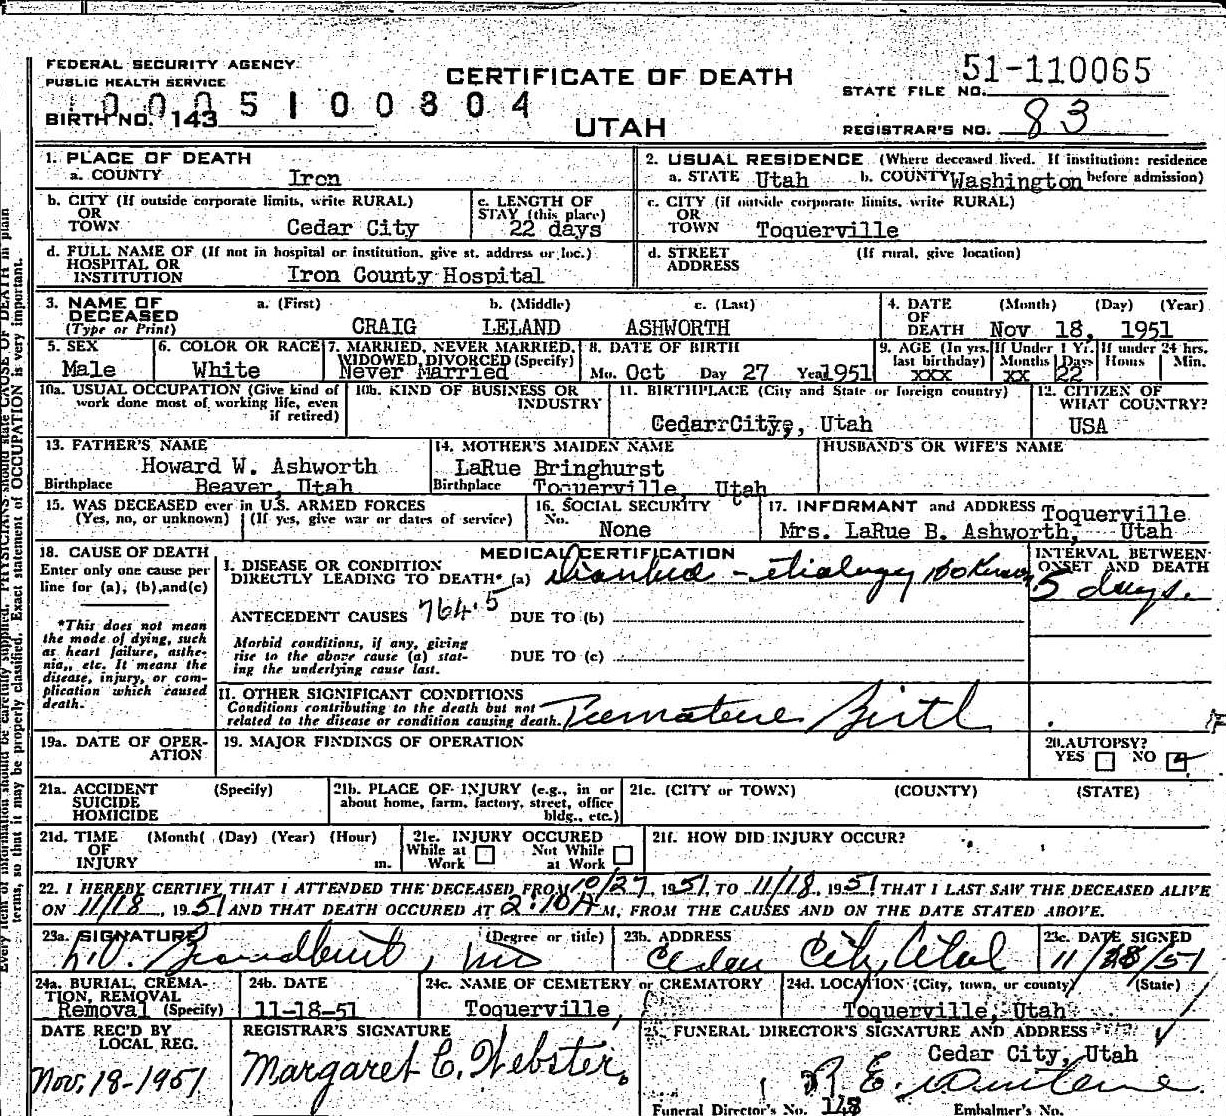 FEDERAL SECURITY AGENCY
PUBLIC HEALTH SERVICE
CERTIFICATE OF DEATH
UTAH
51-110065
STATE FILE NO.
BIRTH NO. 143
1 0 0 0 5 1 0 0 3 0 4
REGISTRAR'S NO. 83
1. PLACE OF DEATH
a. COUNTY Iron
2. USUAL RESIDENCE (Where deceased lived. If institution: residence before admission)
a. STATE Utah b. COUNTY Washington
b. CITY (If outside corporate limits, write RURAL) OR TOWN Cedar City
c. LENGTH OF STAY (this place) 22 days
c. CITY (if outside corporate limits, write RURAL) OR TOWN Toquerville
d. FULL NAME OF HOSPITAL OR INSTITUTION (If not in hospital or institution, give st. address or loc.) Iron County Hospital
d. STREET ADDRESS (If rural, give location)
3. NAME OF DECEASED (Type or Print) a. (First) b. (Middle) c. (Last)
CRAIG LELAND ASHWORTH
4. DATE OF DEATH (Month) (Day) (Year)
Nov 18, 1951
5. SEX Male
6. COLOR OR RACE White
7. MARRIED, NEVER MARRIED, WIDOWED, DIVORCED (Specify) Never Married
8. DATE OF BIRTH
Mo. Oct Day 27 Year 1951
9. AGE (In yrs. last birthday) xxx
If Under 1 Yr. Months xx Days 22
If under 24 hrs. Hours Min.
10a. USUAL OCCUPATION (Give kind of work done most of working life, even if retired)
10b. KIND OF BUSINESS OR INDUSTRY
11. BIRTHPLACE (City and State or foreign country)
Cedar City, Utah
12. CITIZEN OF WHAT COUNTRY?
USA
13. FATHER'S NAME
Howard W. Ashworth
Birthplace Beaver, Utah
14. MOTHER'S MAIDEN NAME
LaRue Bringhurst
Birthplace Toquerville, Utah
HUSBAND'S OR WIFE'S NAME
15. WAS DECEASED ever in U.S. ARMED FORCES
(Yes, no, or unknown) (If yes, give war or dates of service)
16. SOCIAL SECURITY No. None
17. INFORMANT and ADDRESS Toquerville
Mrs. LaRue B. Ashworth, Utah
18. CAUSE OF DEATH
Enter only one cause per line for (a), (b), and (c)
*This does not mean the mode of dying, such as heart failure, asthenia, etc. It means the disease, injury, or complication which caused death.
MEDICAL CERTIFICATION
I. DISEASE OR CONDITION DIRECTLY LEADING TO DEATH* (a) etiology
INTERVAL BETWEEN ONSET AND DEATH
5 days.
ANTECEDENT CAUSES 764.5 DUE TO (b)
Morbid conditions, if any, giving rise to the above cause (a) stating the underlying cause last.
DUE TO (c)
II. OTHER SIGNIFICANT CONDITIONS
Conditions contributing to the death but not related to the disease or condition causing death. Premature Birth
19a. DATE OF OPERATION
19. MAJOR FINDINGS OF OPERATION
20. AUTOPSY?
YES NO
21a. ACCIDENT SUICIDE HOMICIDE (Specify)
21b. PLACE OF INJURY (e.g., in or about home, farm, factory, street, office bldg., etc.)
21c. (CITY or TOWN) (COUNTY) (STATE)
21d. TIME OF INJURY (Month) (Day) (Year) (Hour) m.
21e. INJURY OCCURED
While at Work Not While at Work
21f. HOW DID INJURY OCCUR?
22. I HEREBY CERTIFY THAT I ATTENDED THE DECEASED FROM 10/27, 1951 TO 11/18, 1951 THAT I LAST SAW THE DECEASED ALIVE
ON 11/18, 1951 AND THAT DEATH OCCURED AT 2:10 A M, FROM THE CAUSES AND ON THE DATE STATED ABOVE.
23a. SIGNATURE (Degree or title)
23b. ADDRESS
Cedar City, Utah
23c. DATE SIGNED
11/28/51
24a. BURIAL, CREMATION, REMOVAL (Specify) Removal
24b. DATE 11-18-51
24c. NAME OF CEMETERY or CREMATORY Toquerville,
24d. LOCATION (City, town, or county) (State)
Toquerville, Utah
DATE REC'D BY LOCAL REG.
Nov. 18-1951
REGISTRAR'S SIGNATURE
Margaret C. Webster.
25. FUNERAL DIRECTOR'S SIGNATURE AND ADDRESS
Cedar City, Utah
Funeral Director's No. 148 Embalmer's No.
Every item of information should be carefully supplied. PHYSICIANS should state CAUSE OF DEATH in plain
terms, so that it may be properly classified. Exact statement of OCCUPATION is very important.